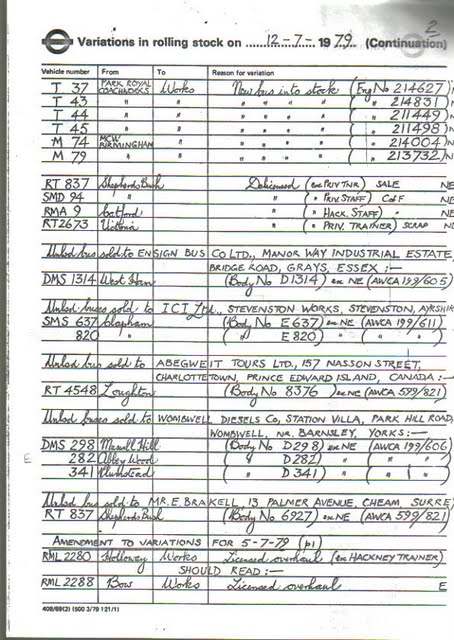 2
Variations in rolling stock on 12-7- 1979. (Continuation)
Vehicle number From To Reason for variation
T 37 PARK ROYAL COACHWORKS Works New bus into stock (Eng No 214627) N
T 43 " " " " " " ( " 214831) N
T 44 " " " " " " ( " 211449) N
T 45 " " " " " " ( " 211498) N
M 74 MCW BIRMINGHAM " " " " " ( " 214004) N
M 79 " " " " " " ( " 213732) N
RT 837 Shepherds Bush Delicensed (ex PRIV TNR) SALE NE
SMD 94 " " ( " PRIV. STAFF) C of F NE
RMA 9 Catford " ( " HACK. STAFF) " NE
RT2673 Victoria " ( " PRIV. TRAINER) SCRAP NE
Unlsd bus sold to ENSIGN BUS CO LTD., MANOR WAY INDUSTRIAL ESTATE,
BRIDGE ROAD, GRAYS, ESSEX :—
DMS 1314 West Ham (Body No D1314) ex NE (AWCA 199/605)
Unlsd buses sold to ICI Ltd., STEVENSTON WORKS, STEVENSTON, AYRSHIR
SMS 637 Clapham (Body No E637) ex NE (AWCA 199/611)
820 " ( " E820) " " "
Unlsd bus sold to ABEGWEIT TOURS LTD., 157 NASSON STREET,
CHARLOTTETOWN, PRINCE EDWARD ISLAND, CANADA :—
RT 4548 Loughton (Body No 8376) ex NE (AWCA 599/821)
Unlsd buses sold to WOMBWELL DIESELS Co, STATION VILLA, PARK HILL ROAD,
WOMBWELL, NR. BARNSLEY, YORKS :—
DMS 298 Muswell Hill (Body No D298) ex NE (AWCA 199/606)
E 282 Abbey Wood ( " D282) " " ( " " )
341 Plumstead ( " D341) " " ( " " )
Unlsd bus sold to MR. E. BRAKELL, 13 PALMER AVENUE, CHEAM, SURRE
RT 837 Shepherds Bush (Body No 6927) ex NE (AWCA 599/821)
AMENDMENT TO VARIATIONS FOR 5-7-79 (p1)
RML 2280 Holloway Works Licensed overhaul (ex HACKNEY TRAINER)
SHOULD READ :—
RML 2288 Bow Works Licensed overhaul E
408/69(2) (500 3/79 121/1)